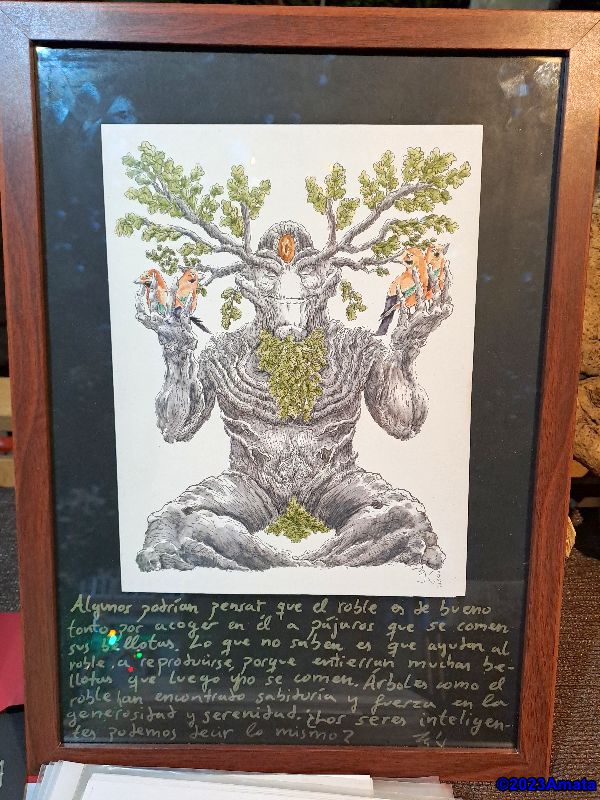 Algunos podrían pensar que el roble es de bueno
tonto por acoger en él a pájaros que se comen
sus bellotas. Lo que no saben es que ayudan al
roble a reproducirse, porque entierran muchas be-
llotas que luego no se comen. Árboles como el
roble han encontrado sabiduría y fuerza en la
generosidad y serenidad. ¿Los seres inteligen-
tes podemos decir lo mismo?
©2023Amata